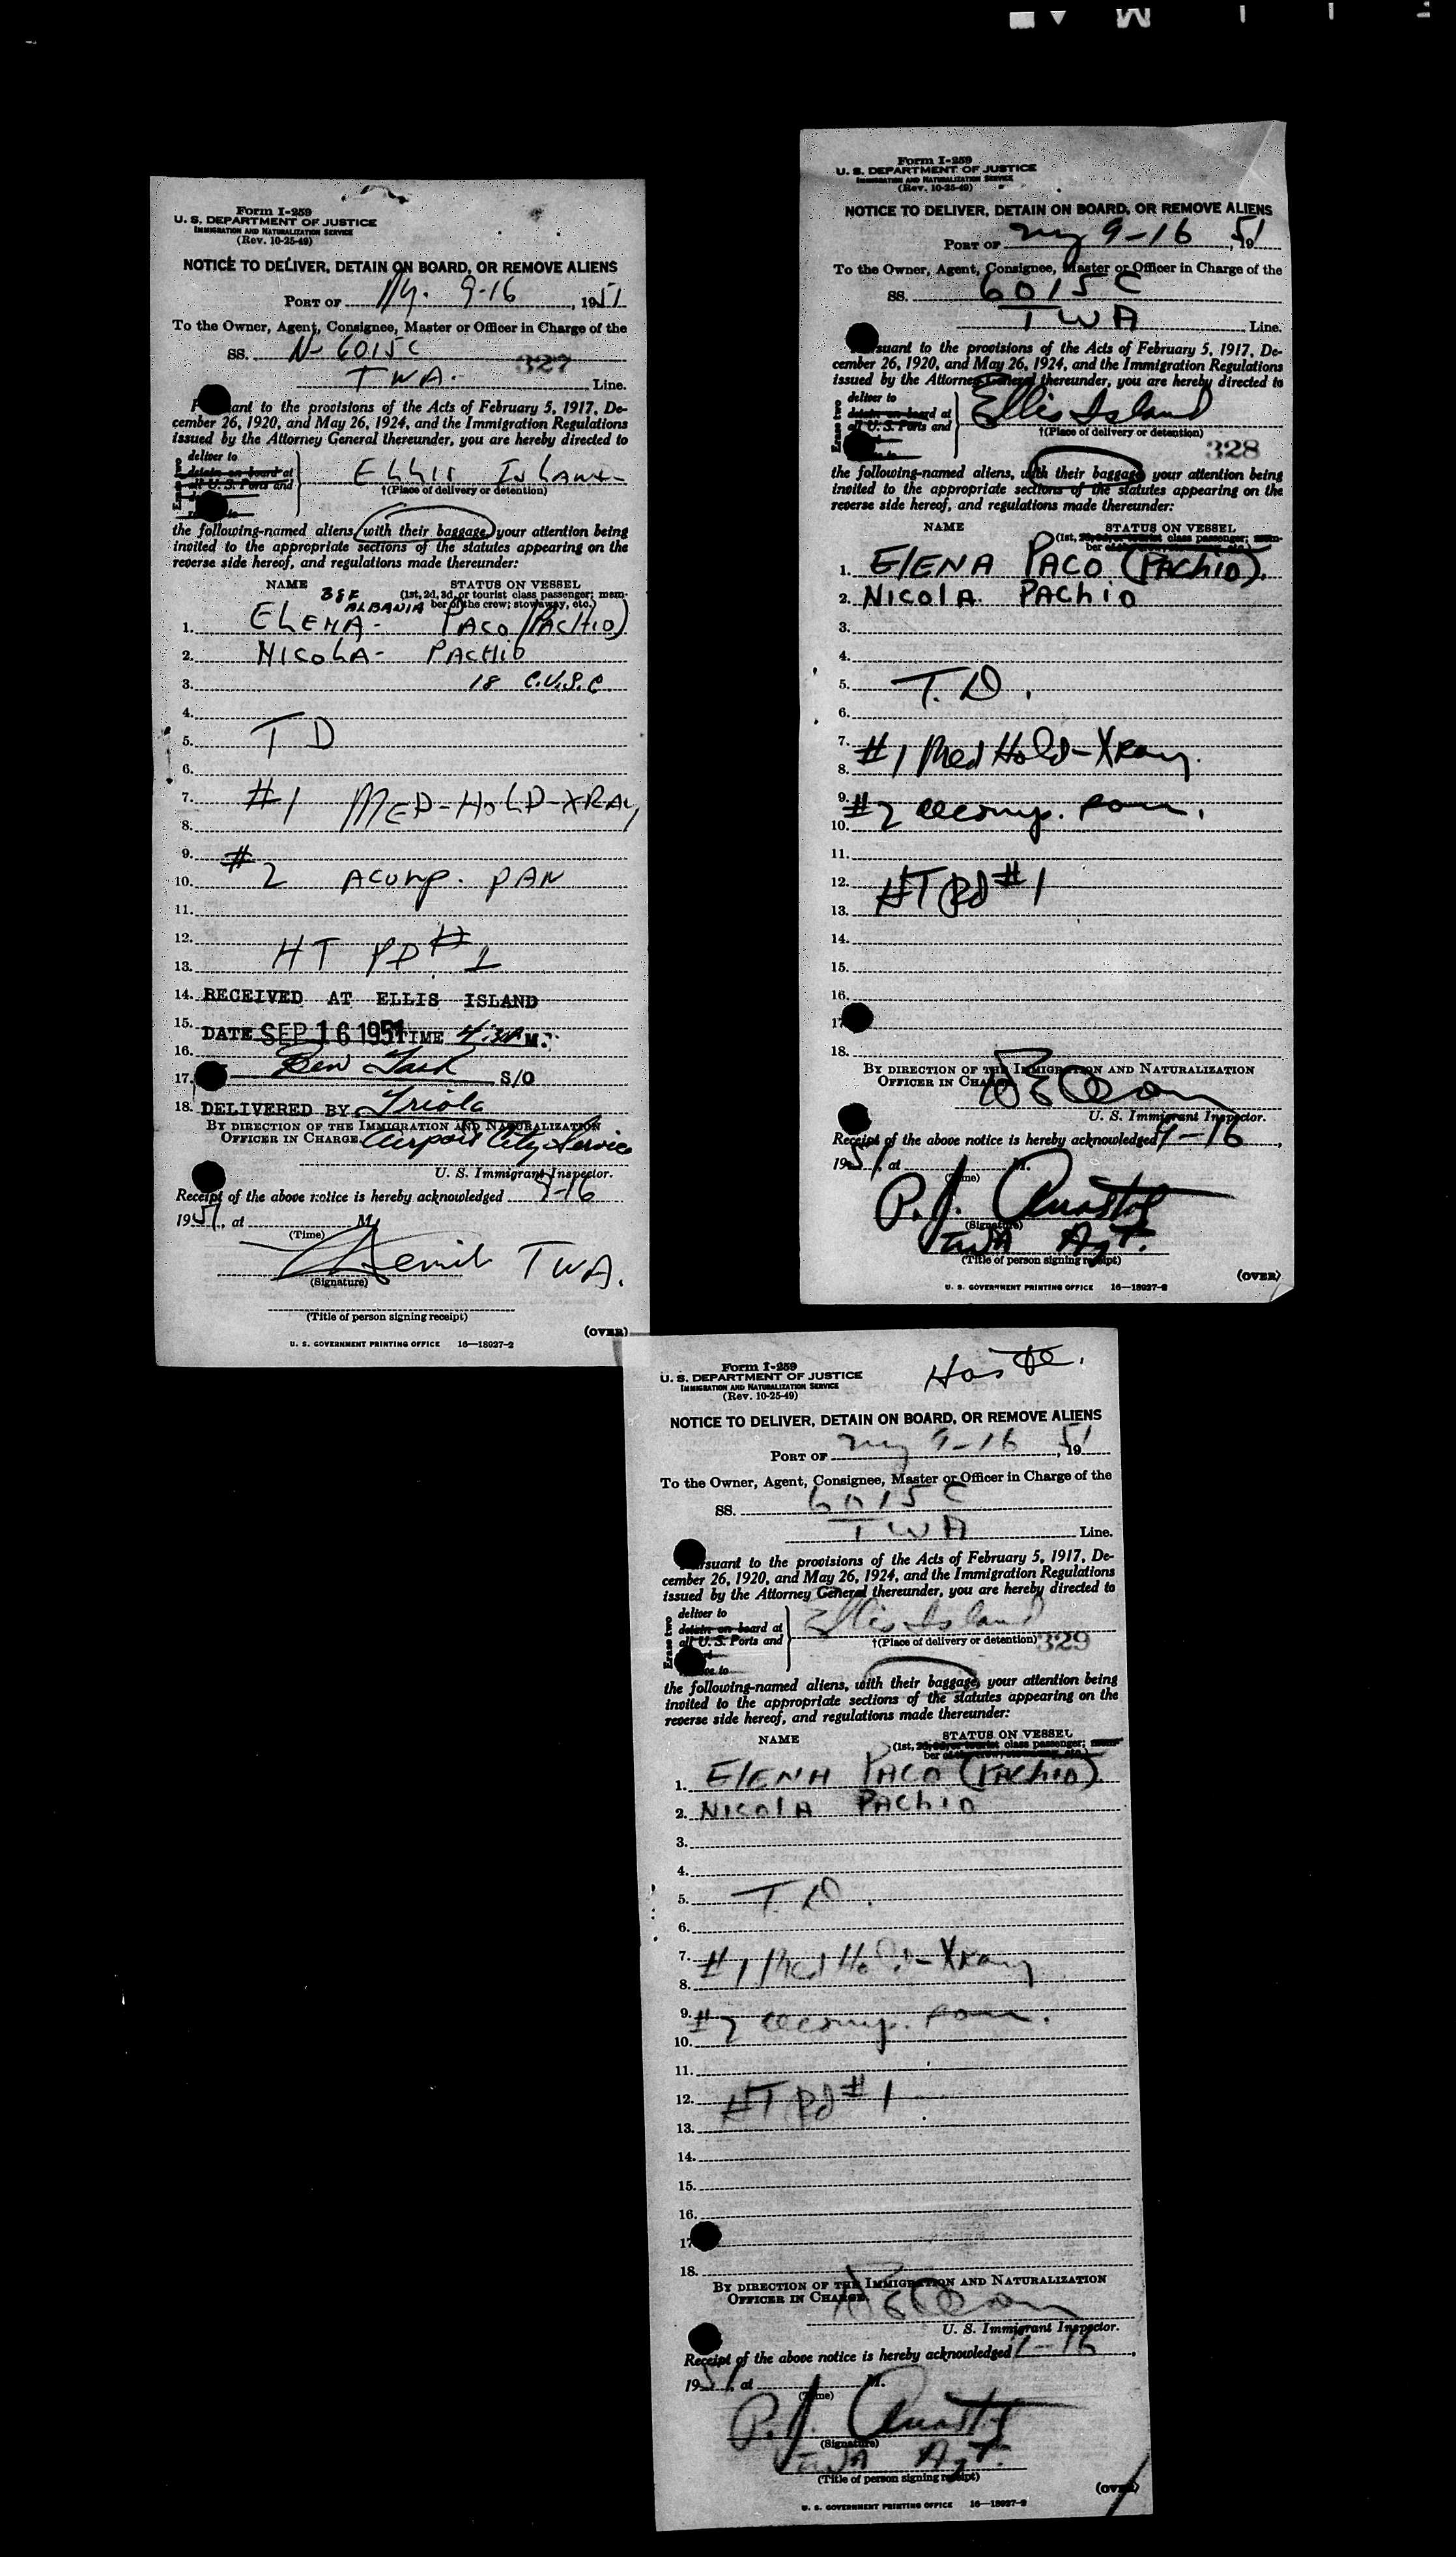 Form I-259
U. S. DEPARTMENT OF JUSTICE
IMMIGRATION AND NATURALIZATION SERVICE
(Rev. 10-25-49)
NOTICE TO DELIVER, DETAIN ON BOARD, OR REMOVE ALIENS
PORT OF NY. 9-16, 1951
To the Owner, Agent, Consignee, Master or Officer in Charge of the
SS. N-6015C 327
TWA. Line.
ant to the provisions of the Acts of February 5, 1917, De-
cember 26, 1920, and May 26, 1924, and the Immigration Regulations
issued by the Attorney General thereunder, you are hereby directed to
deliver to
detain on board at
all U. S. Ports and
Ellis Island
†(Place of delivery or detention)
the following-named aliens, with their baggage, your attention being
invited to the appropriate sections of the statutes appearing on the
reverse side hereof, and regulations made thereunder:
NAME STATUS ON VESSEL
(1st, 2d, 3d, or tourist class passenger; mem-
ALBANIA ber of the crew; stowaway, etc.)
1. ELENA - PACO (PACHIO)
2. NICOLA - PACHIO
3. 18 C.U.S.C.
4.
5. TD
6.
7. #1 MED-HOLD-XRAY
8.
9.
10. #2 ACOMP. PAN
11.
12.
13. HT PD #1
14. RECEIVED AT ELLIS ISLAND
15. DATE SEP 16 1951 TIME M.
16.
17. S/O
18. DELIVERED BY Triolo
BY DIRECTION OF THE IMMIGRATION AND NATURALIZATION
OFFICER IN CHARGE. Airport City Service
U. S. Immigrant Inspector.
Receipt of the above notice is hereby acknowledged 9-16
1951, at M.
(Time)
TWA.
(Signature)
(Title of person signing receipt)
(OVER)
U. S. GOVERNMENT PRINTING OFFICE 16—18027-2
Form I-259
U. S. DEPARTMENT OF JUSTICE
IMMIGRATION AND NATURALIZATION SERVICE
(Rev. 10-25-49)
NOTICE TO DELIVER, DETAIN ON BOARD, OR REMOVE ALIENS
PORT OF NY 9-16, 1951
To the Owner, Agent, Consignee, Master or Officer in Charge of the
SS. 6015C
TWA Line.
suant to the provisions of the Acts of February 5, 1917, De-
cember 26, 1920, and May 26, 1924, and the Immigration Regulations
issued by the Attorney General thereunder, you are hereby directed to
Erase two
deliver to
detain on board at
all U. S. Ports and
Ellis Island
†(Place of delivery or detention)
328
the following-named aliens, with their baggage, your attention being
invited to the appropriate sections of the statutes appearing on the
reverse side hereof, and regulations made thereunder:
NAME STATUS ON VESSEL
(1st, 2d, 3d, or tourist class passenger; mem-
ber of the crew; stowaway, etc.)
1. ELENA PACO (PAChIO).
2. NICOLA PAChIO
3.
4.
5. T.D.
6.
7. #1 Med Hold-Xray.
8.
9. #2 accomp.
10.
11.
12. HT Pd #1
13.
14.
15.
16.
17
18.
BY DIRECTION OF THE IMMIGRATION AND NATURALIZATION
OFFICER IN CHARGE.
U. S. Immigrant Inspector.
Receipt of the above notice is hereby acknowledged 9-16,
1951, at M.
(Time)
P. J.
(Signature)
TWA Agt.
(Title of person signing receipt)
(OVER)
U. S. GOVERNMENT PRINTING OFFICE 16—18027-2
Form I-259
U. S. DEPARTMENT OF JUSTICE
IMMIGRATION AND NATURALIZATION SERVICE
(Rev. 10-25-49)
NOTICE TO DELIVER, DETAIN ON BOARD, OR REMOVE ALIENS
PORT OF NY 9-16, 1951
To the Owner, Agent, Consignee, Master or Officer in Charge of the
SS. 6015C
TWA Line.
rsuant to the provisions of the Acts of February 5, 1917, De-
cember 26, 1920, and May 26, 1924, and the Immigration Regulations
issued by the Attorney General thereunder, you are hereby directed to
Erase two
deliver to
detain on board at
all U. S. Ports and
Ellis Island
†(Place of delivery or detention) 329
the following-named aliens, with their baggage, your attention being
invited to the appropriate sections of the statutes appearing on the
reverse side hereof, and regulations made thereunder:
NAME STATUS ON VESSEL
(1st, 2d, 3d, or tourist class passenger; mem-
ber of the crew; stowaway, etc.)
1. ELENA PACO (PAChIO).
2. NICOLA PAChIO
3.
4.
5. T.D.
6.
7. #1 Med Hold-Xray
8.
9. #2 accomp.
10.
11.
12. HT Pd #1
13.
14.
15.
16.
17
18.
BY DIRECTION OF THE IMMIGRATION AND NATURALIZATION
OFFICER IN CHARGE.
U. S. Immigrant Inspector.
Receipt of the above notice is hereby acknowledged 9-16,
1951, at M.
(Time)
P. J.
(Signature)
TWA Agt.
(Title of person signing receipt)
(OVER)
U. S. GOVERNMENT PRINTING OFFICE 16—18027-2